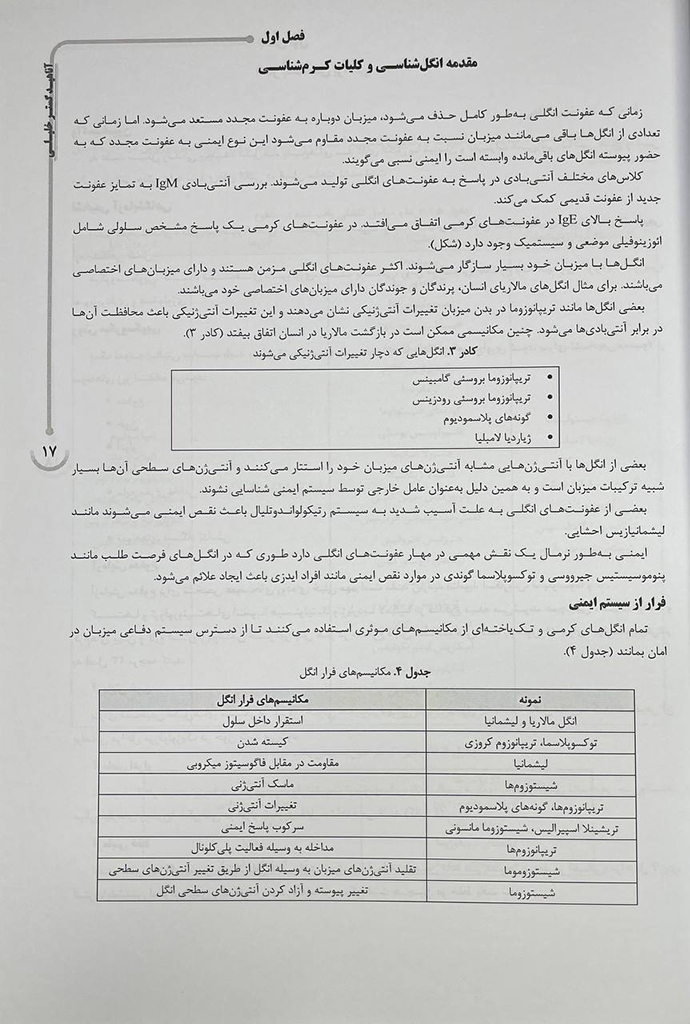 فصل اول
مقدمه انگل‌شناسی و کلیات کرم‌شناسی
آناهید گستر خلیلی
۱۷
زمانی که عفونت انگلی به‌طور کامل حذف می‌شود، میزبان دوباره به عفونت مجدد مستعد می‌شود. اما زمانی که
تعدادی از انگل‌ها باقی می‌مانند میزبان نسبت به عفونت مجدد مقاوم می‌شود این نوع ایمنی به عفونت مجدد که به
حضور پیوسته انگل‌های باقی‌مانده وابسته است را ایمنی نسبی می‌گویند.
کلاس‌های مختلف آنتی‌بادی در پاسخ به عفونت‌های انگلی تولید می‌شوند. بررسی آنتی‌بادی IgM به تمایز عفونت
جدید از عفونت قدیمی کمک می‌کند.
پاسخ بالای IgE در عفونت‌های کرمی اتفاق می‌افتد. در عفونت‌های کرمی یک پاسخ مشخص سلولی شامل
ائوزینوفیلی موضعی و سیستمیک وجود دارد (شکل).
انگل‌ها با میزبان خود بسیار سازگار می‌شوند. اکثر عفونت‌های انگلی مزمن هستند و دارای میزبان‌های اختصاصی
می‌باشند. برای مثال انگل‌های مالاریای انسان، پرندگان و جوندگان دارای میزبان‌های اختصاصی خود می‌باشند.
بعضی انگل‌ها مانند تریپانوزوما در بدن میزبان تغییرات آنتی‌ژنیکی نشان می‌دهند و این تغییرات آنتی‌ژنیکی باعث محافظت آن‌ها
در برابر آنتی‌بادی‌ها می‌شود. چنین مکانیسمی ممکن است در بازگشت مالاریا در انسان اتفاق بیفتد (کادر ۳).
کادر ۳. انگل‌هایی که دچار تغییرات آنتی‌ژنیکی می‌شوند
• تریپانوزوما بروسئی گامبینس
• تریپانوزوما بروسئی رودزینس
• گونه‌های پلاسمودیوم
• ژیاردیا لامبلیا
بعضی از انگل‌ها با آنتی‌ژن‌هایی مشابه آنتی‌ژن‌های میزبان خود را استتار می‌کنند و آنتی‌ژن‌های سطحی آن‌ها بسیار
شبیه ترکیبات میزبان است و به همین دلیل به‌عنوان عامل خارجی توسط سیستم ایمنی شناسایی نشوند.
بعضی از عفونت‌های انگلی به علت آسیب شدید به سیستم رتیکولواندوتلیال باعث نقص ایمنی می‌شوند مانند
لیشمانیازیس احشایی.
ایمنی به‌طور نرمال یک نقش مهمی در مهار عفونت‌های انگلی دارد طوری که در انگل‌های فرصت طلب مانند
پنوموسیستیس جیرووسی و توکسوپلاسما گوندی در موارد نقص ایمنی مانند افراد ایدزی باعث ایجاد علائم می‌شود.
فرار از سیستم ایمنی
تمام انگل‌های کرمی و تک‌یاخته‌ای از مکانیسم‌های موثری استفاده می‌کنند تا از دسترس سیستم دفاعی میزبان در
امان بمانند (جدول ۴).
جدول ۴. مکانیسم‌های فرار انگل
نمونه مکانیسم‌های فرار انگل
انگل مالاریا و لیشمانیا استقرار داخل سلول
توکسوپلاسما، تریپانوزوم کروزی کیسته شدن
لیشمانیا مقاومت در مقابل فاگوسیتوز میکروبی
شیستوزوم‌ها ماسک آنتی‌ژنی
تریپانوزوم‌ها، گونه‌های پلاسمودیوم تغییرات آنتی‌ژنی
تریشینلا اسپیرالیس، شیستوزوما مانسونی سرکوب پاسخ ایمنی
تریپانوزوم‌ها مداخله به وسیله فعالیت پلی‌کلونال
شیستوزوموما تقلید آنتی‌ژن‌های میزبان به وسیله انگل از طریق تغییر آنتی‌ژن‌های سطحی
شیستوزوما تغییر پیوسته و آزاد کردن آنتی‌ژن‌های سطحی انگل